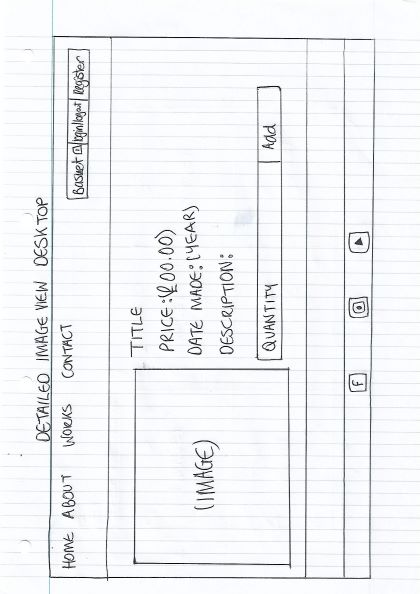 DETAILED IMAGE VIEW DESKTOP
HOME ABOUT WORKS CONTACT
Basket login/logout Register
TITLE
PRICE:(£00.00)
DATE MADE:(YEAR)
(IMAGE)
DESCRIPTION:
QUANTITY Add
f